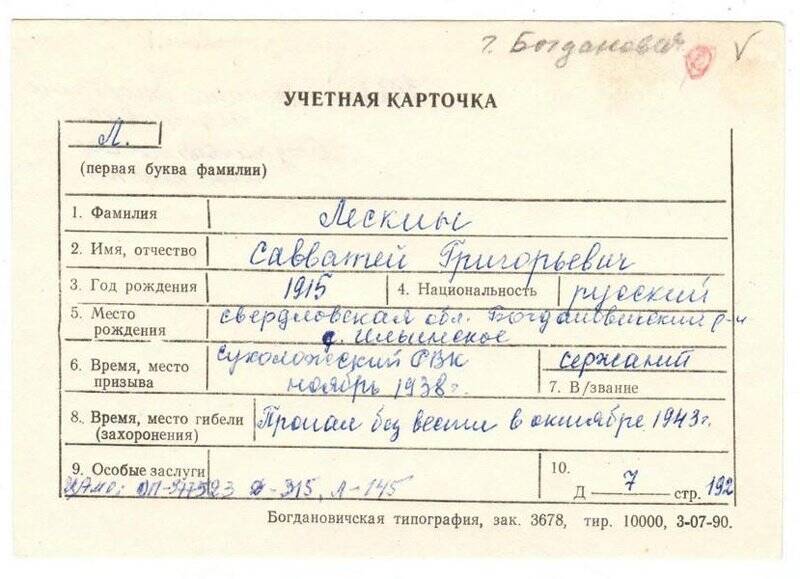 г. Богданович V
УЧЕТНАЯ КАРТОЧКА
Л.
(первая буква фамилии)
1. Фамилия Лескин
2. Имя, отчество Савватей Григорьевич
3. Год рождения 1915 4. Национальность русский
5. Место рождения свердловская обл. Богдановичский р-н
с. Ильинское
6. Время, место призыва сухоложский РВК
ноябрь 1938г.
сержант
7. В/звание
8. Время, место гибели (захоронения) Пропал без вести в октябре 1943г.
9. Особые заслуги
ЦАМО: ОП-977523 Д-315, Л-145
10.
Д 7 стр. 192
Богдановичская типография, зак. 3678, тир. 10000, 3-07-90.